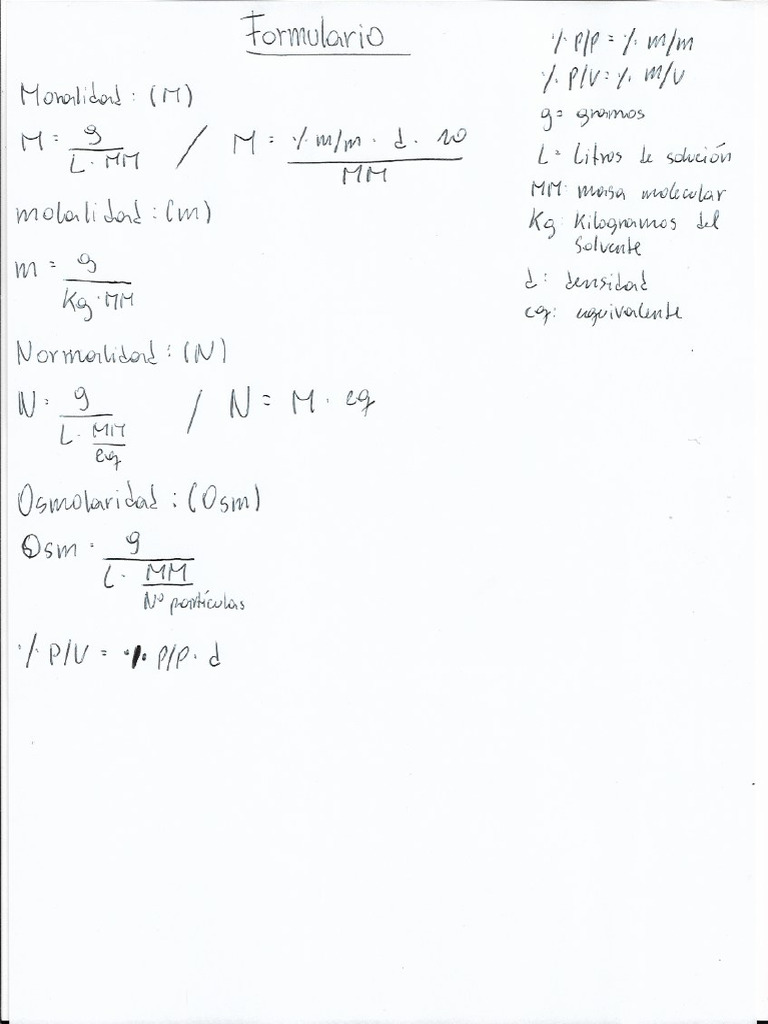 Formulario
Moralidad: (M)
M = g / L · MM / M = % m/m · d · 10 / MM
molalidad: (m)
m = g / Kg · MM
Normalidad: (N)
N = g / L · MM / eq / N = M · eq
Osmolaridad: (Osm)
Osm = g / L · MM / Nº partículas
% P/V = % P/P · d
% P/P = % m/m
% P/V = % m/v
g = gramos
L = Litros de solución
MM: masa molecular
Kg: Kilogramos del
solvente
d: densidad
eq: equivalente